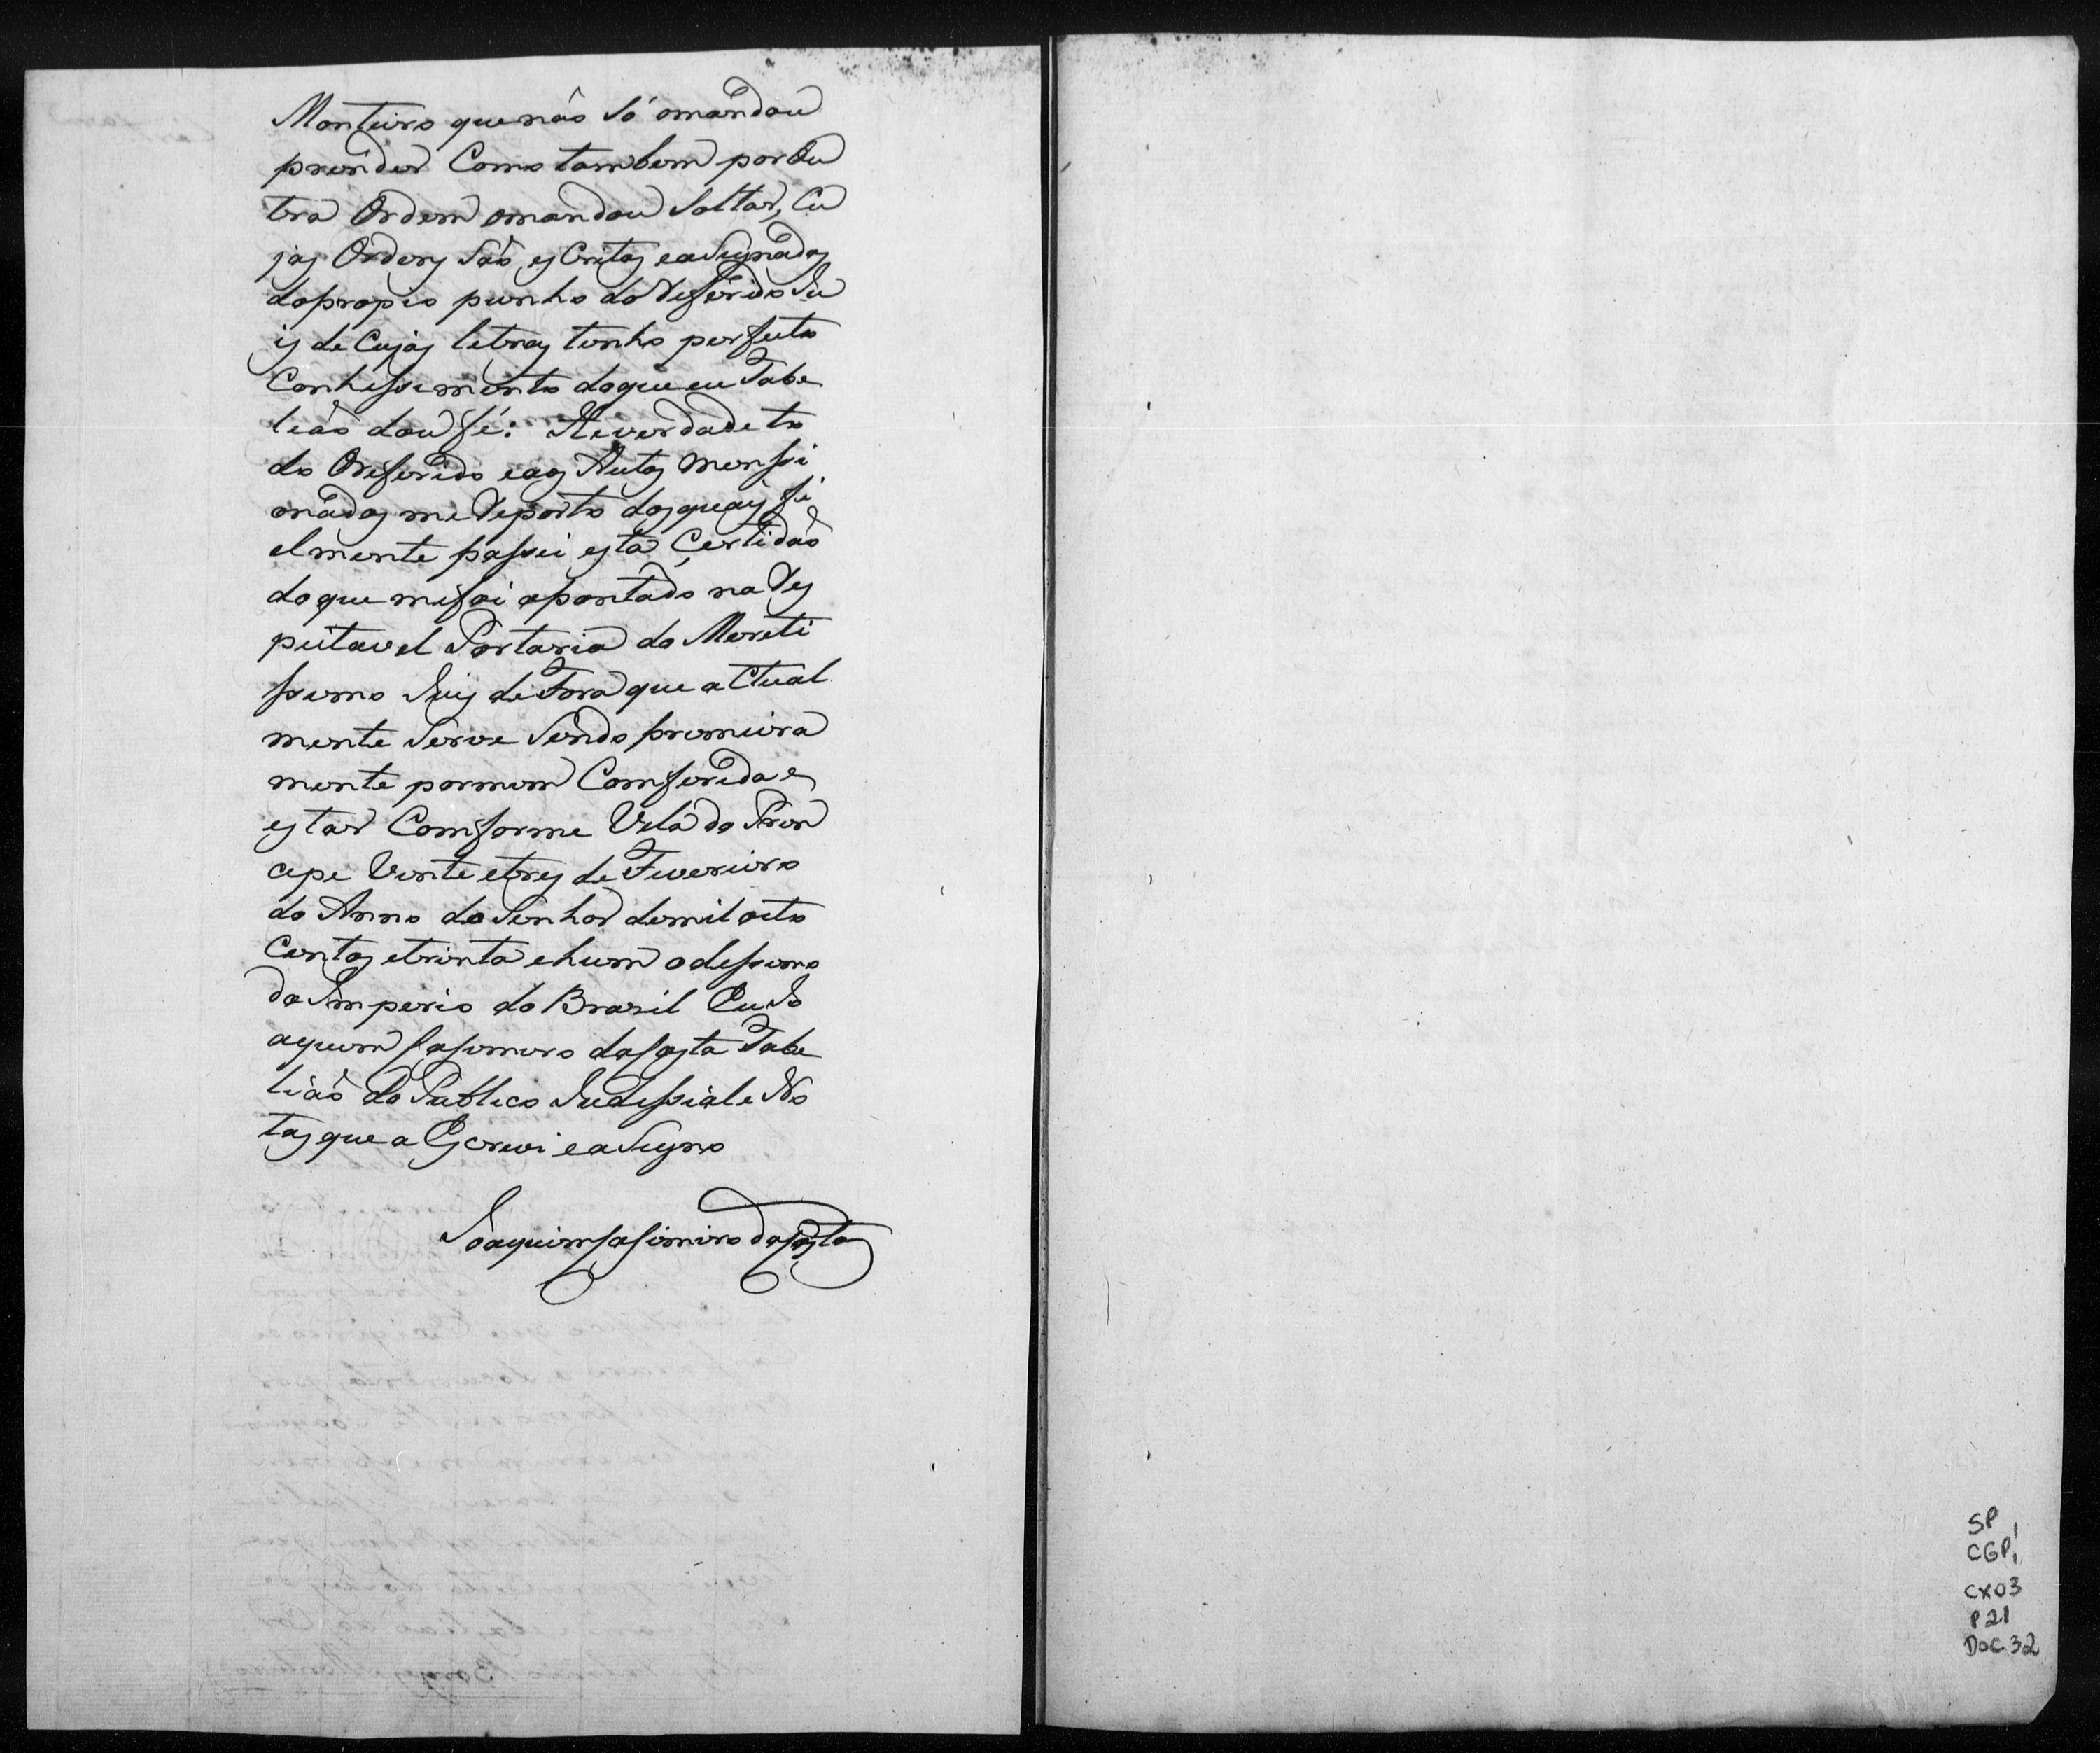 Monteiro que não Só omandou
prender Como tambem por Ou
tra Ordem omandou Soltar, Cu
jas Ordens São, esCritas eaSignadas
dopropio punho do Referido Ju
is de Cujas letras tenho perfeito
Conhessimento doque eu Tabe
lião dou fé: He verdade to
do Oreferido eaos Autos menssi
onados me Reporto dosquais fi
elmente passei esta Certidão
doque mefoi apontado na Res
peitavel Portaria do Mereti
ssimo Juis de Fora que aCtual
mente Serve Sendo primeira
mente pormim Comferida e
estar Comforme Vila do Prin
cipe Vinte etres de Fevereiro
do Anno do Senhor demil oito
Centos etrinta ehum odessimo
do Imperio do Brazil Eu Jo
aquim Casimiro daCosta Tabe
lião do Publico Judissial e No
tas que a Escrevi eaSigno
Joaquim Casimiro daCosta
SP
CGP1
CX03
P21
DOC.32